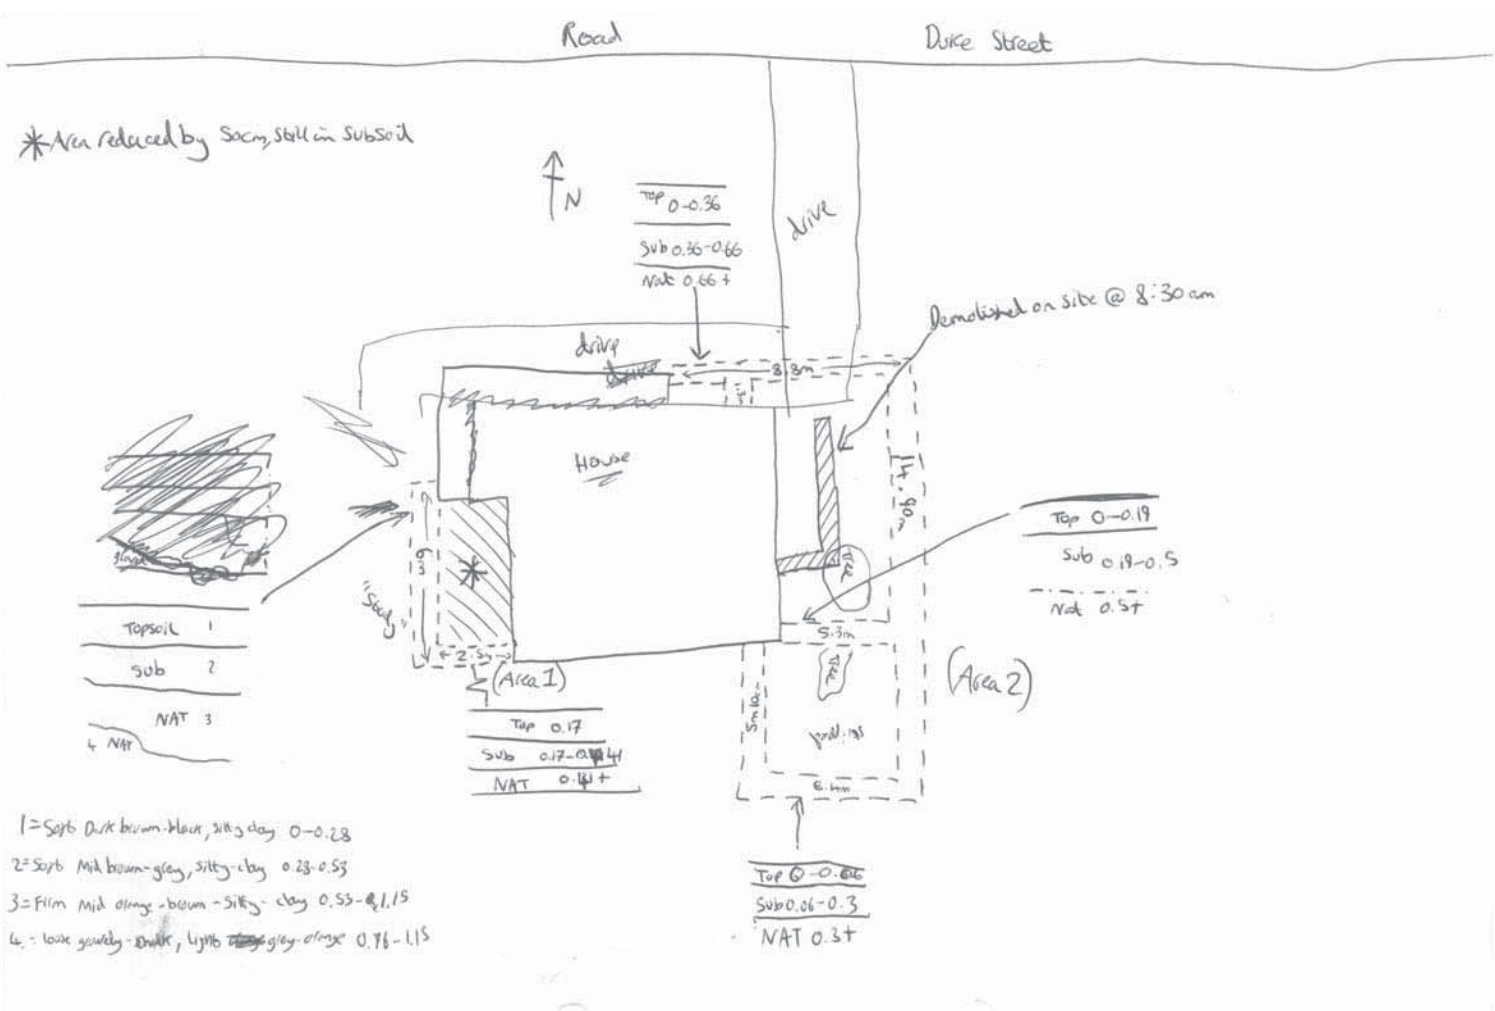 Road
Duke Street
* Area reduced by 50cm, still in subsoil
N
Top 0-0.36
Sub 0.36-0.66
Nat 0.66+
drive
Demolished on site @ 8:30am
drive
8.8m
House
14.90m
Top 0-0.19
Sub 0.19-0.5
Nat 0.5+
Tree
*
"Study"
5.3m
2.5m
(Area 1)
Tree
(Area 2)
Topsoil 1
Sub 2
NAT 3
4 NAT
Top 0.17
Sub 0.17-0.41
NAT 0.41+
6.4m
1 = Soft Dark brown-black, silty clay 0-0.28
2 = Soft Mid brown-grey, silty-clay 0.28-0.53
3 = Firm Mid orange-brown-silty-clay 0.53-1.15
4 = loose gravely-chalk, light grey-orange 0.76-1.15
Top 0-0.06
Sub 0.06-0.3
NAT 0.3+